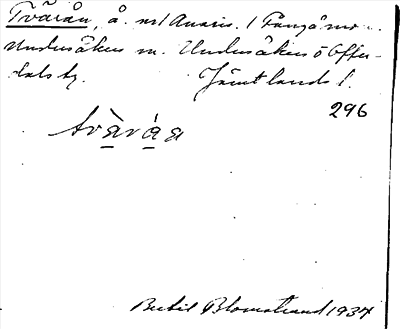 Tväråu, å. nv/Anaris. / Tångåmo
Undersåkers sn. Undersåkers o Offer-
dals tg. Jämtlands l.
296
tvàráa
Bertil Blomstrand 1934